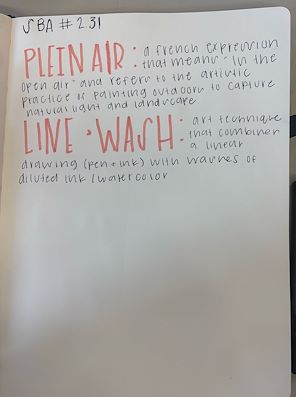 SBA # 2.31
PLEIN AIR: a french expression
that means "in the
open air" and refers to the artistic
practice of painting outdoors to capture
natural light and landscape
LINE + WASH: art technique
that combines
a linear
drawing (pen + ink) with washes of
diluted ink / watercolor